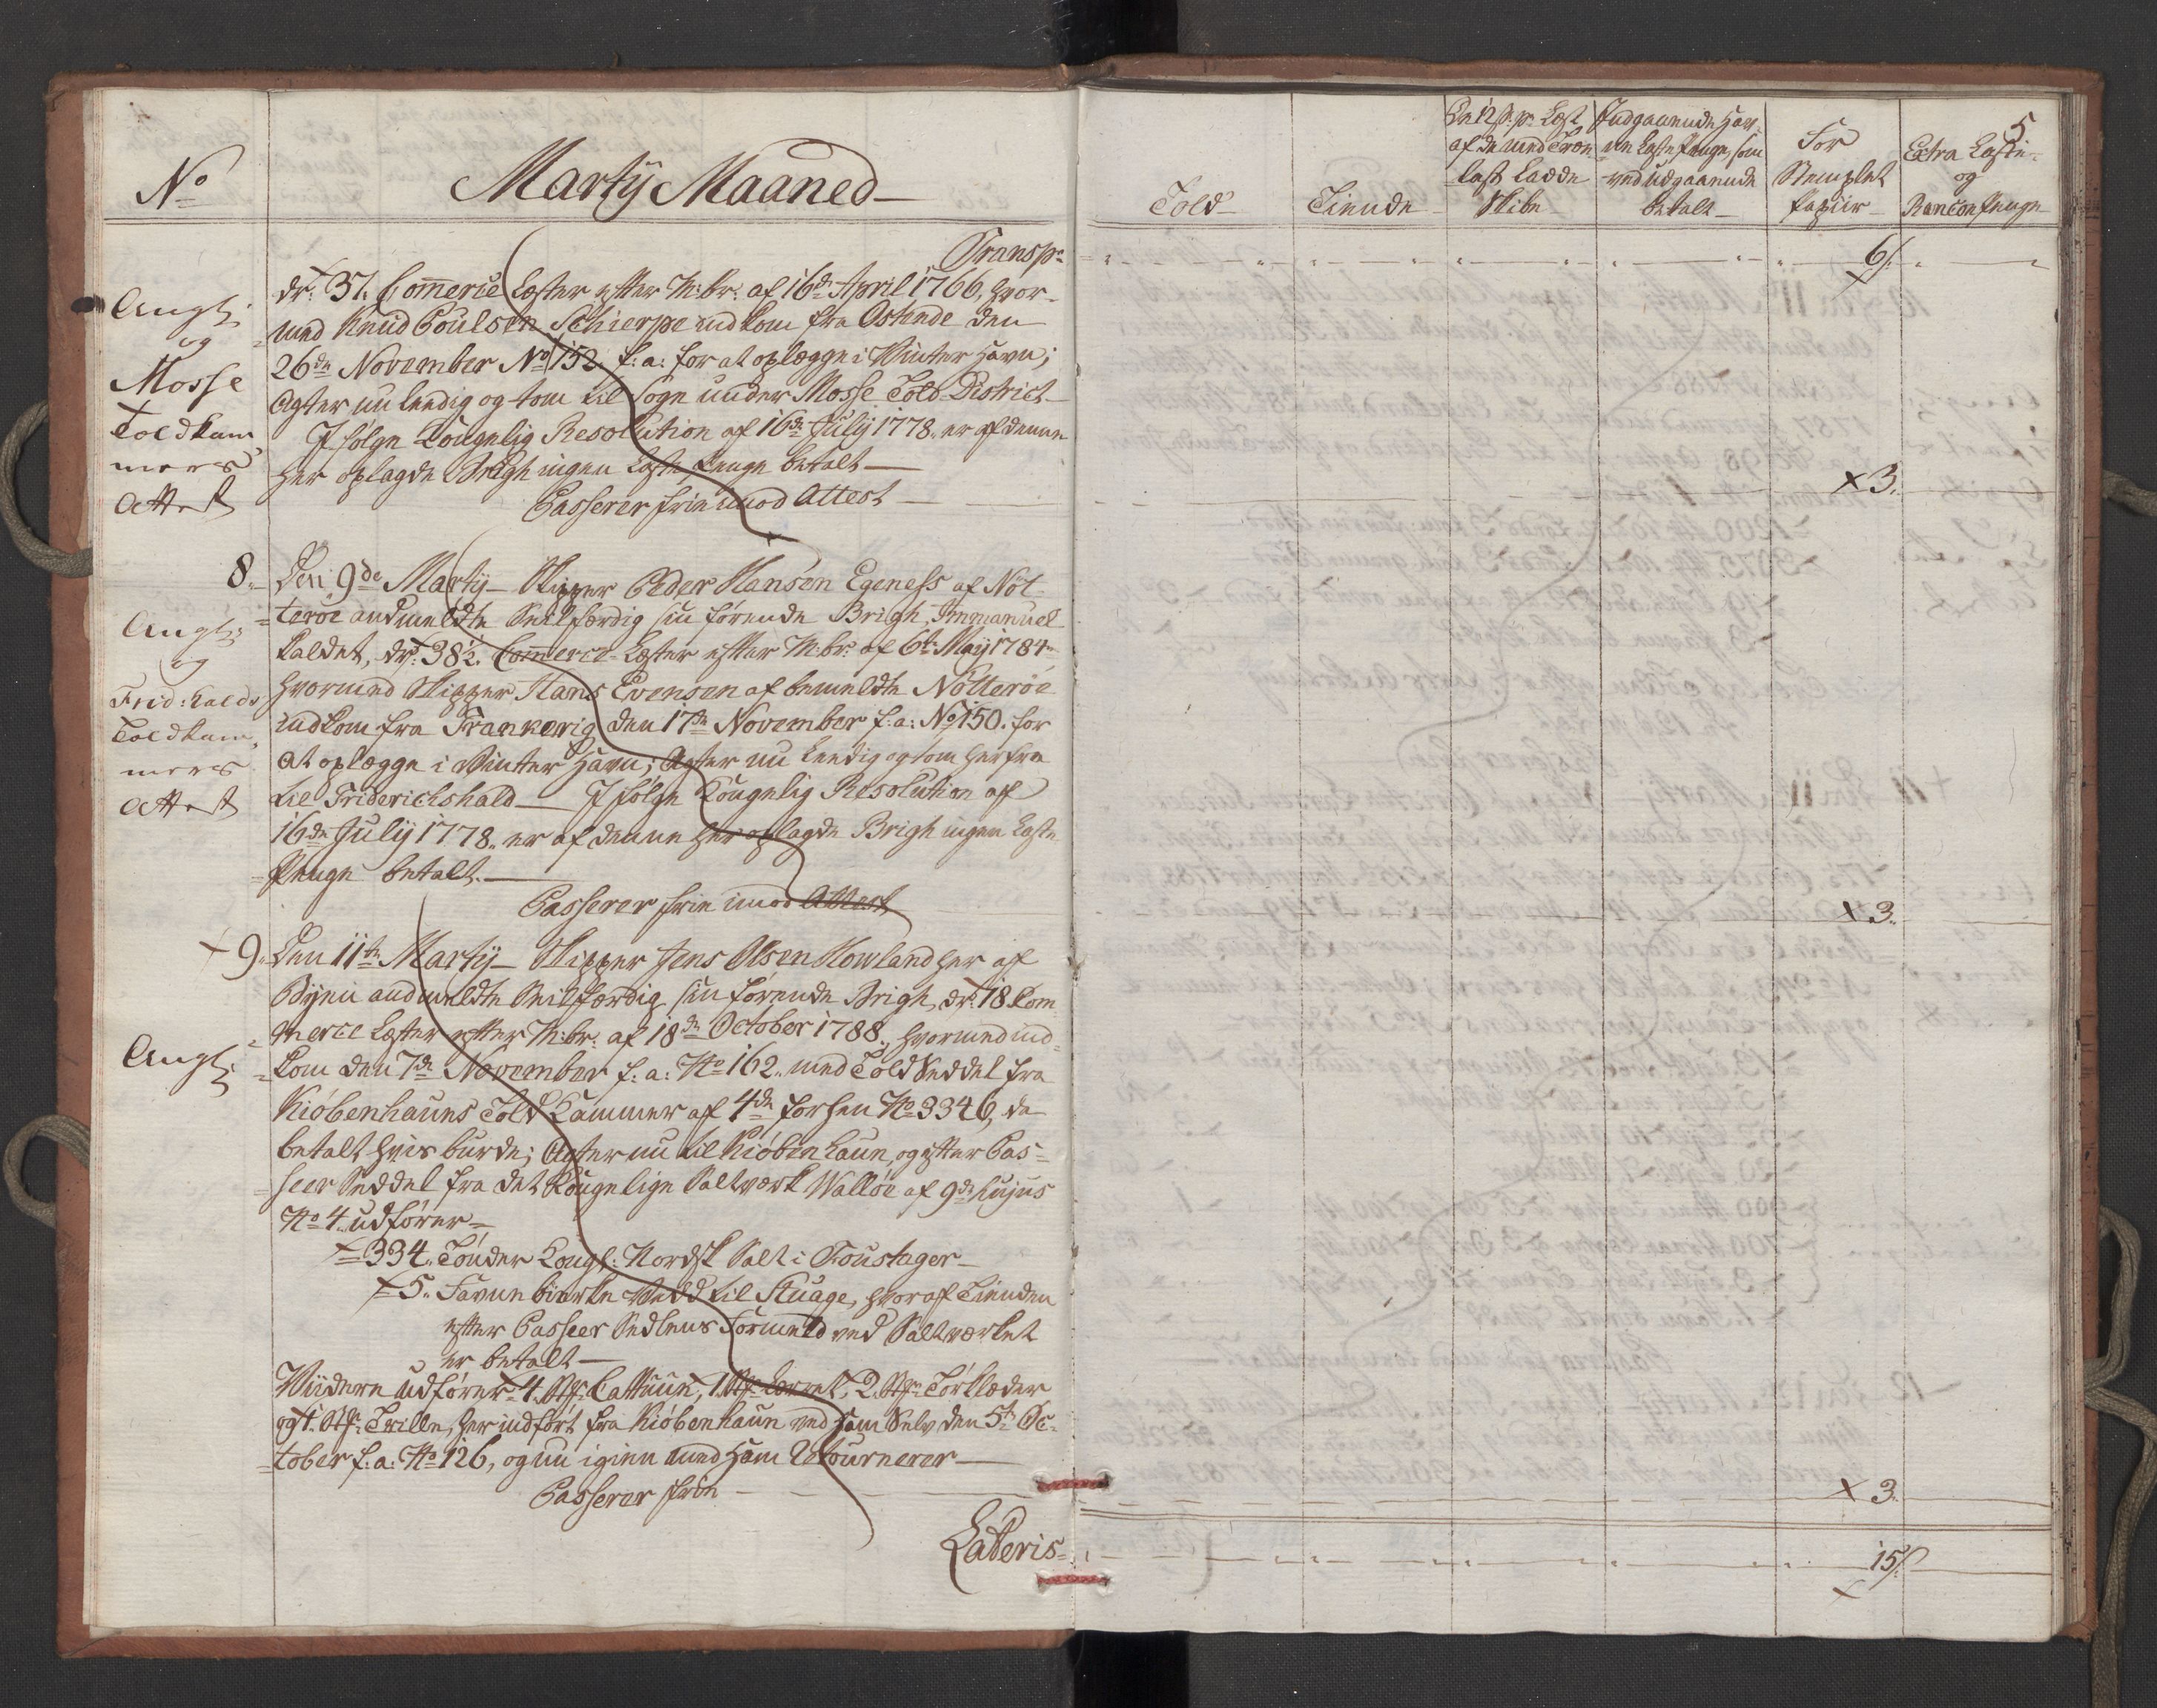 No
Martÿ Maaned
Transpr
dr: 37. Com̅erce Læster efter M:br: af 16de April 1766, hvor-
=med Knud Poulsen Schierpe indkom fra Ostende den
26de November No 152 f: a: for at oplægge i Winter Havn;
Agter nu leedig og tom til Sogn under Mosse Told District
I følge Kongelig Resolution af 16de Julÿ 1778 er af denne
her oplagde Brigh ingen Laste Penge betalt
Passerer frie imod Attest
Angl:
og
Mosse
Toldkam
mers
Attest
8. Den 9de Martÿ Skipper Peder Hansen Egeness af Nöt
=teröe andmeldte Seilfærdig sin förende Brigh, Immanuel
kaldet, dr: 38½ Com̅erce Læster efter M:br: af 6te Maÿ 1784
hvormed Skipper Hans Evensen af bemeldte Nötteröe
indkom fra Frankerig den 17de November f: a: No 150. for
at oplægge i Winter Havn; Agter nu leedig og tom herfra
til Friderichshald I følge Kongelig Resolution af
16de Julÿ 1778 er af denne her oplagde Brigh ingen Laste
=Penge betalt.
Passerer frie imod Attest
Angl:
og
Frid:halds
Toldkam,
mers
Attest
+ 9. Den 11te Martÿ Skipper Jens Olsen Howland her af
Bÿen andmeldte Seilfærdig sin förende Brigh, dr: 18 Com
=merce Læster efter M:br: af 18de October 1788, hvormed ind=
=kom den 7de November f: a: No 162 med Told Seddel fra
Kiöbenhauns Told Kammer af 4de forhen No 3346, da
betalt hvis burde; Agter nu til Kiöbenhaun, og efter Pas=
=seer Seddel fra det Kongelige Saltværk Wallöe af 9de hujus
No 4 udförer=
334. Tönder Kongl: Nordsk Salt i Foustager
5. Favne birke Wedd til Stuage, hvoraf Tienden
efter Passeer Sedlens Formeld ved Saltværket
er betalt
Angl:
Widere udförer 4. St: Cattuun, 1. St: Lerret, 2. St: Törklæder
og 1. St: Trille, her indfört fra Kiöbenhaun ved ham Selv den 5te Oc=
=tober f: a: No 126, og nu igien med ham Retournerer
Passerer frie
Lateris
5
Told
Tiende
De 12 s. pr Læst
af de med Træe
last Ladde
Skibe
Indgaaende Hav
ne Laste Penge, som
ved udgaaende
betalt
For
Stemplet
Papiir
Extra Laste
og
Rancon Penge
6.
x 3.
x 3.
x 3.
15